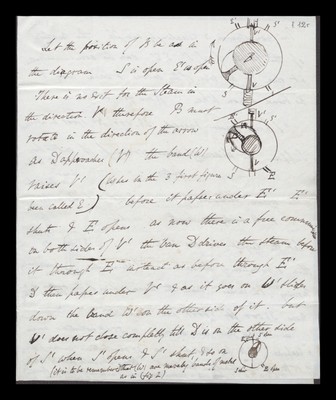 Let the position of B be as in
the diagram S is open E' is open
There is no exit for the Steam in
the direction V therefore B must
rotate in the direction of the arrow
as D approaches (V') the band (W)
raises V' (as has in the 3 first figures
been called E) before it passes under E'' E''
shuts & E' opens as now there is a free
on both sides of V' the van D drives the steam before
it through E''' as before through E'
D then passes under V' & as it goes on V' slides
down the band W on the other side of it but
V' does not close completely till D is on the other side
of S'' when S'' opens & S' shuts, & so on
(it is to be remembered that (W) are merely bands
as in (fig 2)